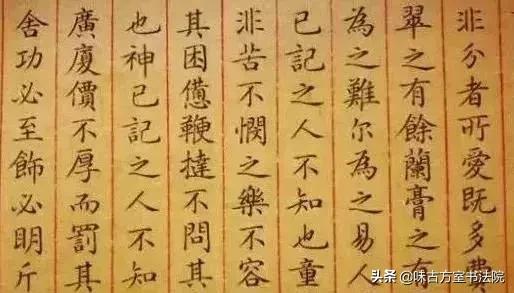 非分者所愛既多
翠之有餘蘭膏之有
為之難尔為之易人
已記之人不知也童
非苦不憫之樂不容
其困憊鞭撻不問其
也神已記之人不知
廣廈價不厚而罰其
舍功必至飾必明斤
头条 @味古方室书法院